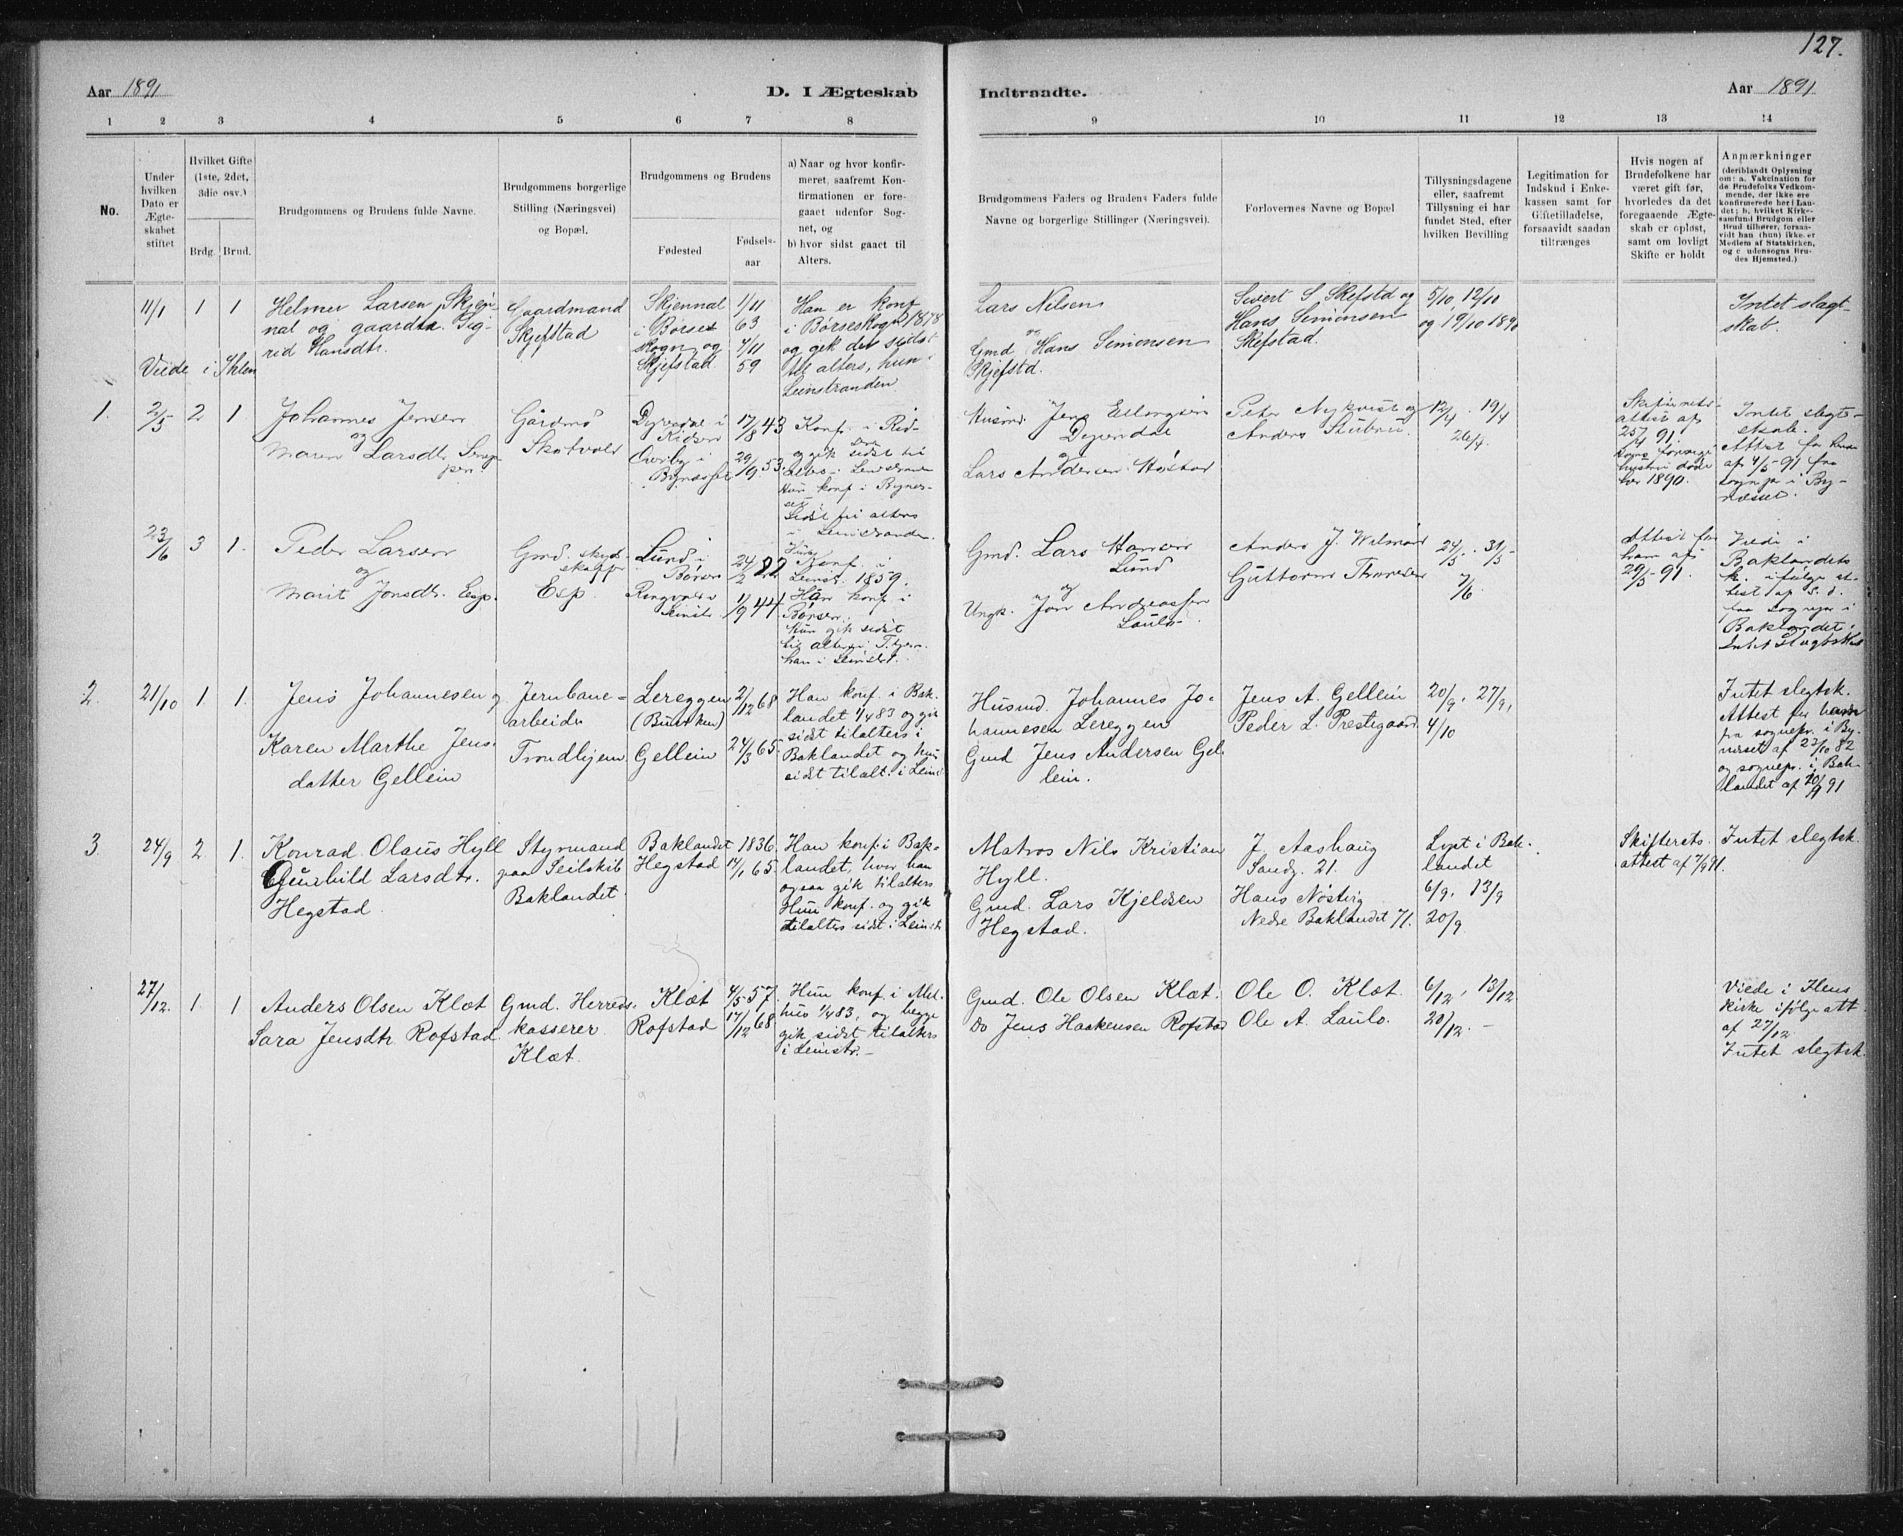 127.
Aar 1891
D. I Ægteskab
Indtraadte.
Aar 1891
1 2 3 4 5 6 7 8 9 10 11 12 13 14
No.
Under hvilken Dato er Ægteskabet stiftet
Hvilket Gifte (1ste, 2det, 3die osv.)
Brdg. Brud.
Brudgommens og Brudens fulde Navne.
Brudgommens borgerlige Stilling (Næringsvei) og Bopæl.
Brudgommens og Brudens
Fødested
Fødselsaar
a) Naar og hvor konfirmeret, saafremt Konfirmationen er foregaaet udenfor Sognet, og
b) hvor sidst gaaet til Alters.
Brudgommens Faders og Brudens Faders fulde Navne og borgerlige Stillinger (Næringsvei).
Forlovernes Navne og Bopæl
Tillysningsdagene eller, saafremt Tillysning ei har fundet Sted, efter hvilken Bevilling
Legitimation for Indskud i Enkekassen samt for Giftetilladelse, forsaavidt saadan tiltrænges
Hvis nogen af Brudefolkene har været gift før, hvorledes da det foregaaende Ægteskab er opløst, samt om lovligt Skifte er holdt
Anmærkninger (deriblandt Oplysning om: a. Vakcination for de Brudefolks Vedkommende, der ikke ere konfirmerede her i Landet; b. hvilket Kirkesamfund Brudgom eller Brud tilhører, forsaavidt han (hun) ikke er Medlem af Statskirken, og c. udensogns Brudes Hjemsted.)
11/1 1 1
Helmer Larsen Skjennal og gaardm. Sigrid Hansdtr.
Viede i
Gaardmand
Skjefstad
Skjennal
i Børseskogn og
Skjefstad
1/11 63
7/11 59
Han er konf
i Børseskogn 1878
og gik der sidst
til alters, hun i
Leinstranden
Lars Nilsen
og
Gmd Hans Simonsen
Skjefstd.
Sivert S Skefstd og
Hans Simonsen
Skefstad.
5/10 12/10
og 19/10 1890
Intet slagtskab.
1. 2/5 2 1
Johannes Jensen
og
Maren Larsdtr
Gårdmd
Skotvold
17/8 43
29/9 53
Konf. i
og gik sidst til
Husmd Jens
Lars Andersen
Peter Nykvist og
Anders Stubru.
12/4 . 19/4
26/4.
attest af
25/4 91.
hustru døde
her 1890.
Intet slegtskab.
Attest for
af 4/5-91 fra
sognepr i Bynæsset.
23/6 3 1.
Peder Larsen
og
Marit Jonsdtr. Esp.
Gmd. skydsskaffer
Esp.
Lund i
Børsen
Ringvold i
24/2
1/9 44
Konf. i
Leinst. 1859.
Han konf i
Børsen.
Hun gik sidst
til alters i
han i Leinst.
Gmd. Lars Hansen
Lund
og
Ungk. Jon Andreassen
Laulo
Anders J.
Guttorm Thoresen
24/5 . 31/5
7/6
Attest for
ham af
29/5-91.
Viede i
Baklandets
k. ifølge attest af s. d.
fra sognepr i
Baklandet.
Intet Slegtskab
2. 21/10 1 1.
Jens Johannesen og
Karen Marthe Jensdatter Gellein
Jernbanearbeider
Trondhjem
Lereggen
(Buviken)
Gellein
2/12 68
24/3 65.
Han konf. i Baklandet 1/4 83 og gik
sidst tilalters i
Baklandet og hun
sidst tilalt. i Leinst
Husmd. Johannes Johannesen Lereggen
Gmd Jens Andersen Gellein.
Jens A. Gellein
Peder L. Prestegaard
20/9. 27/9,
4/10
Intet slegtsk.
Attest for ham
fra sognepr. i Bynesset af 22/10 82
og sognepr. i Baklandet af 20/9 91
3 24/9 2 1.
Konrad Olaus Hyll
Gunhild Larsdtr.
Hegstad
Styrmand
paa Seilskib
Baklandet
Baklandet
Hegstad
1836.
14/1 65.
Han konf. i Baklandet, hvor han
ogsaa gik tilalters
Hun konf. og gik
tilalters sidst i Leinst
Matros Nils Kristian
Hyll.
Gmd. Lars Kjeldsen
Hegstad.
J. Aashaug
Sandg. 21.
Hans Nøstvig
Nedre Baklandet 71.
Lyst i Baklandet
6/9. 13/9
20/9
Skifteretsattest af 7/9 91.
Intet slegtsk.
27/12. 1. 1
Anders Olsen Klæt
Sara Jensdtr Rofstad.
Gmd. Herredskasserer
Klæt.
Klæt
Rofstad
4/5 57.
17/12 68
Hun konf. i Melhus 1/4 83, og begge
gik sidst tilalters
i Leinstr.
Gmd. Ole Olsen Klæt.
Do Jens Haakensen Rofstad
Ole O. Klæt.
Ole A. Laulo.
6/12. 13/12.
20/12.
Viede i Ilens
kirke ifølge att
af 27/12.
Intet slegtsk.